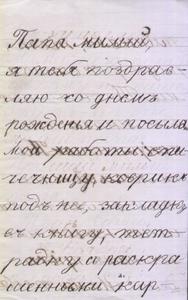 Папа милый
я тебя поздрав
ляю со днемъ
рожденья и посыла
мои работы спи
чечницу коврикъ
подъ нее, закладку
въ книгу, тет
радку и раскра
шенныя кар